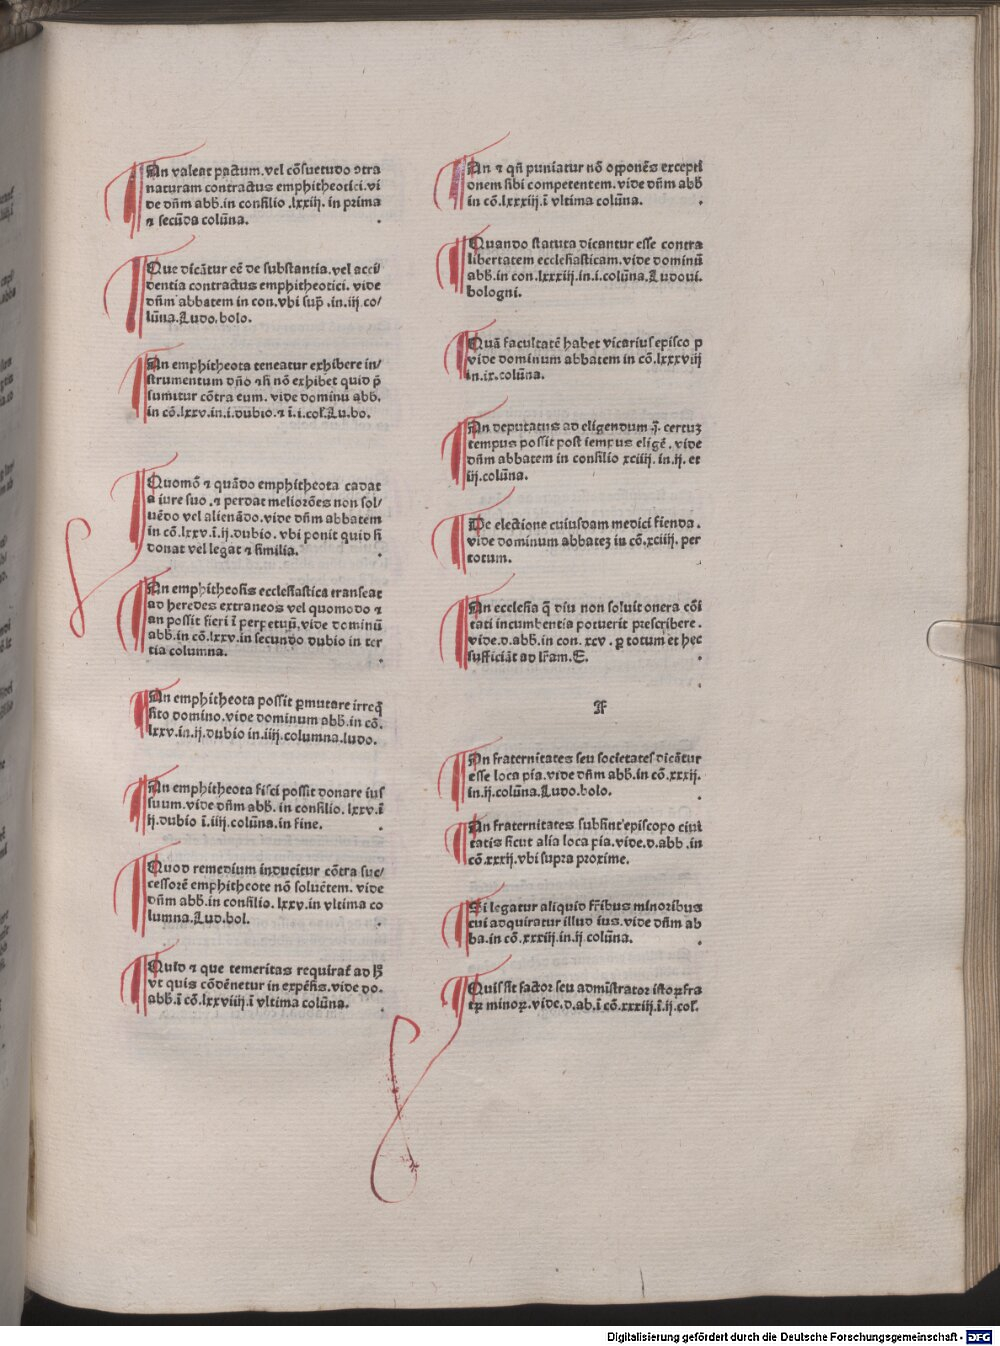 An valeat pactum.vel cõsuetudo ɔtra
naturam contractus emphitheotici.vi
de dñm abb̃.in consilio .lxxiij. in prima
⁊ secũda colũna.
Que dicãtur eẽ de substantia.vel acci/
dentia contractus emphitheotici. vide
dñm abbatem in con.vbi sup̃ .in.iij.co/
lũna.Ludo.bolo.
An emphitheota teneatur exhibere in/
strumentum dño ⁊ si nõ exhibet quid p̃
sumitur cõtra eum. vide dominũ abb̃.
in cõ.lxxv.in.i.dubio.⁊ ĩ.i.col̃.Lu.bo.
Quomõ ⁊ quãdo emphitheota cadat
a iure suo .⁊ perdat meliorões non sol/
uẽdo vel alienãdo.vide dñm abbatem
in cõ.lxxv.ĩ.ij.dubio. vbi ponit quid si
donat vel legat ⁊ similia.
An emphitheosis ecclesiastica transeat
ad heredes extraneos vel quomodo ⁊
an possit fieri ĩ perpetuũ.vide dominũ
abb̃.in cõ.lxxv.in secundo dubio in ter
tia columna.
An emphitheota possit ꝑmutare irreq̃
sito domino.vide dominum abb̃.in cõ.
lxxv.in.ij.dubio in.iiij.columna.ludo.
An emphitheota fisci possit donare ius
suum.vide dñm abb̃. in consilio. lxxv.ĩ
ij.dubio ĩ.iiij.colũna.in fine.
Quod remedium inducitur cõtra suc/
cessorẽ emphitheote nõ soluẽtem. vide
dñm abb̃.in consilio. lxxv.in vltima co
lumna.Lud.bol.
Quid ⁊ que temeritas requirat̃ ad h̃
vt quis cõdẽnetur in expẽsis.vide do.
abb̃.ĩ cõ.lxxviiij.ĩ vltima colũna.
An ⁊ qñ puniatur nõ opponẽs excepti
onem sibi competentem.vide dñm abb̃
in cõ.lxxxiij.ĩ vltima colũna.
Quando statuta dicantur esse contra
libertatem ecclesiasticam.vide dominũ
abb̃.in con.lxxxiij.in.i.colũna.Ludoui.
bologni.
Quã facultatẽ habet vicarius episco p
vide dominum abbatem in cõ.lxxxviij
in.ix.colũna.
An deputatus ad eligendum q̃. certuʒ
tempus possit post tempus eligẽ. vide
dñm abbatem in consilio xciiij. in.ij. et
iij.colũna.
De electione cuiusdam medici fienda.
vide dominum abbateʒ in cõ.xciiij. per
totum.
An ecclesia q̃ diu non soluit onera cõi
tati incumbentia potuerit prescribere.
vide.d.abb̃.in con. xcv . ꝑ totum et hec
sufficiãt ad lr̃am.E.
F
An fraternitates seu societates dicãtur
esse loca pia.vide dñm abb̃.in cõ.xxxij.
in.ij.colũna.Ludo.bolo.
An fraternitates subsint episcopo ciui
tatis sicut alia loca pia.vide.d.abb .in
cõ.xxxij.vbi supra proxime.
Si legatur aliquid fr̃ibus minoribus
cui adquiratur illud ius.vide dñm ab
ba.in cõ.xxxiij.in.ij colũna.
Quis sit factor seu admĩstrator istoꝝ fra
tꝝ minoꝝ.vide.d.ab.ĩ cõ.xxxiij.ĩ.ij.col̃.
Digitalisierung gefördert durch die Deutsche Forschungsgemeinschaft - DFG